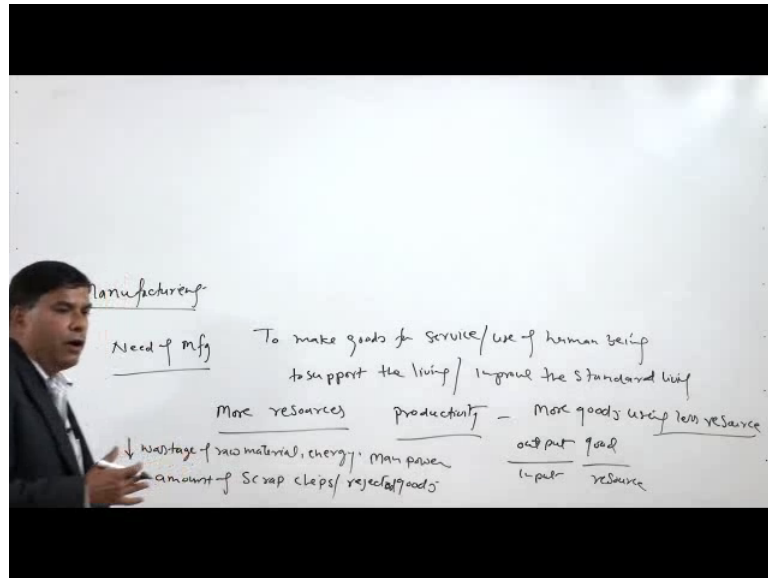 Manufacturing
Need of Mfg To make goods for service/use of human being
to support the living/ improve the standard living
More resources productivity - More goods using less resource
↓ wastage of raw material, energy, man power output good
amount of scrap chips/ rejected goods input resource